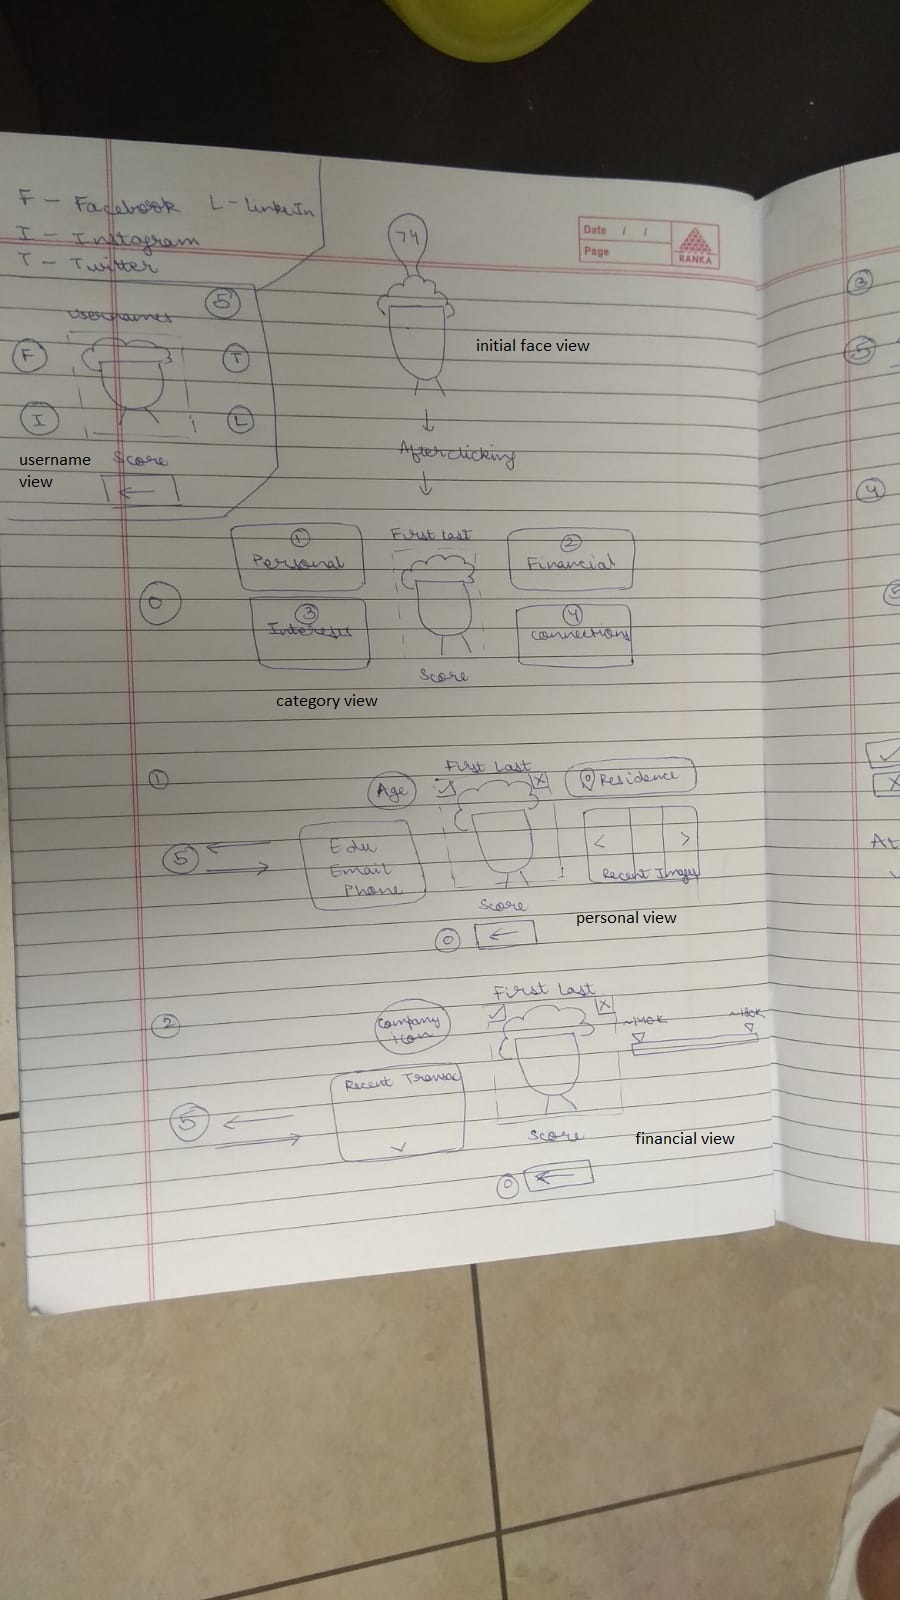 F - Facebook L - LinkeIn
I - Instagram
T - Twitter
Date / /
Page
RANKA
74
5
usernames
F
T
I
L
username
view
Score
←
initial face view
↓
After clicking
↓
First last
1
Personal
2
Financial
0
3
Interests
4
Connections
Score
category view
1
First Last
Age
Residence
5
Edu
Email
Phone
< >
Recent Images
Score
personal view
0 ←
2
First Last
Company
icon
~140K
~180K
Recent Transac
5
Score
financial view
0 ←
3
5
4
5
At